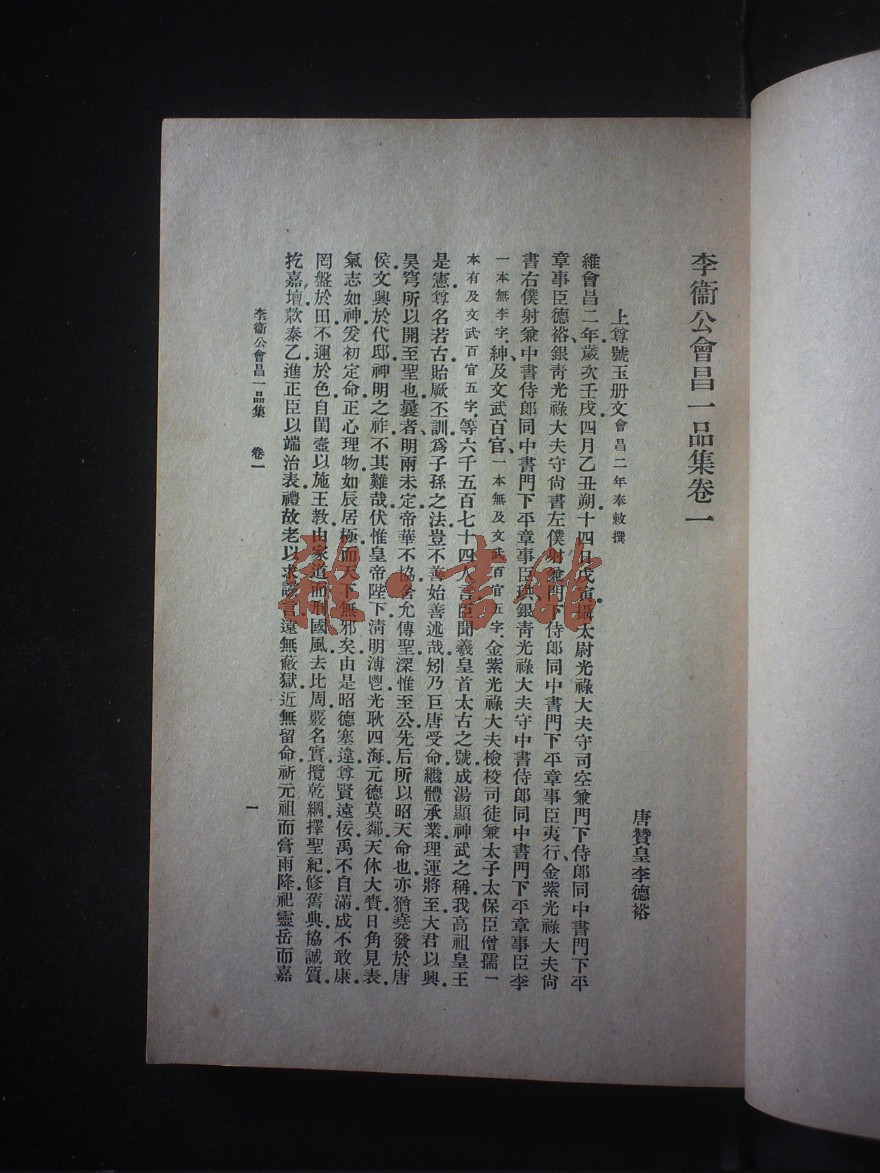 李衞公會昌一品集卷一
唐贊皇李德裕
上尊號玉册文會昌二年奉敕撰
維會昌二年歲次壬戌四月乙丑朔十四日戊寅攝太尉光祿大夫守司空兼門下侍郎同中書門下平
章事臣德裕、銀青光祿大夫守尚書左僕射兼門下侍郎同中書門下平章事臣夷行、金紫光祿大夫尚
書右僕射兼中書侍郎同中書門下平章事臣珙、銀青光祿大夫守中書侍郎同中書門下平章事臣李
一本無李字.紳及文武百官一本無及文武百官五字.金紫光祿大夫檢校司徒兼太子太保臣僧孺一
本有及文武百官五字.等六千五百七十四人言、臣聞羲皇首太古之號成湯顯神武之稱我高祖皇王
是憲尊名若古貽厥丕訓爲子孫之法豈不善始善述哉矧乃巨唐受命繼體承業理運將至大君以興
昊穹所以開至聖也曩者明兩未定帝華不協舍允傳聖深惟至公先后所以昭天命也亦猶堯發於唐
侯文興於代邸神明之祚不其難哉伏惟皇帝陛下淸明溥鬯光耿四海元德莫鄰天休大賚日角見表
氣志如神爰初定命正心理物如辰居極而天下無邪矣由是昭德塞違尊賢遠佞禹不自滿成不敢康
罔盤於田不邇於色自閨壼以施王教由家道而刑國風去比周覈名實攬乾綱擇聖紀修舊典協誠質
扢嘉壇款泰乙進正臣以端治表禮故老以求讜言遠無蔽獄近無留命祈元祖而膏雨降祀靈岳而嘉
李衞公會昌一品集 卷一
一
雜·書館